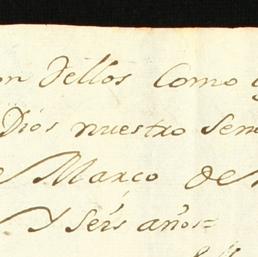 on dellos Como
Dios nuestro Sen
Março de
Y seis años=